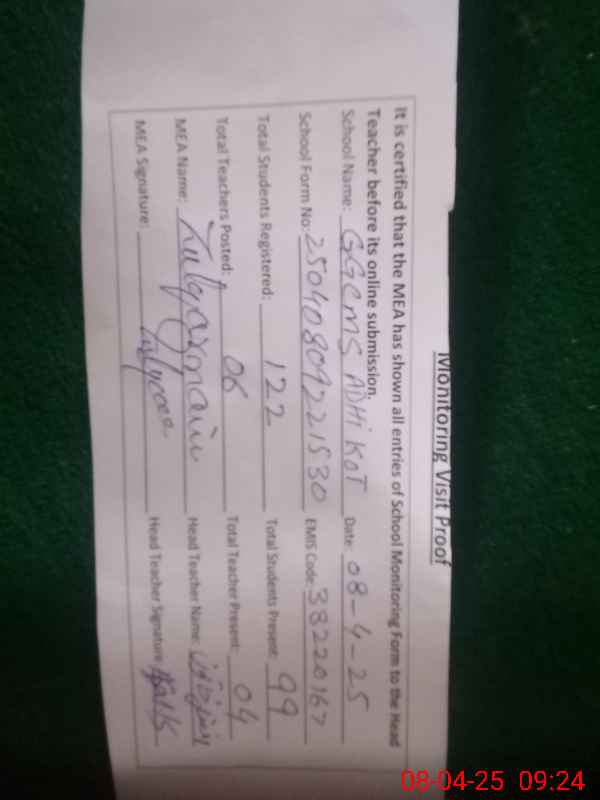 Monitoring Visit Proof
It is certified that the MEA has shown all entries of School Monitoring Form to the Head
Teacher before its online submission.
School Name: GGCMS ADHI KOT Date: 08-4-25
School Form No: 25040809221530 EMIS Code: 38220167
Total Students Registered: 122 Total Students Present: 99
Total Teachers Posted: 06 Total Teacher Present: 04
MEA Name: Head Teacher Name:
MEA Signature: Head Teacher Signature:
08-04-25 09:24